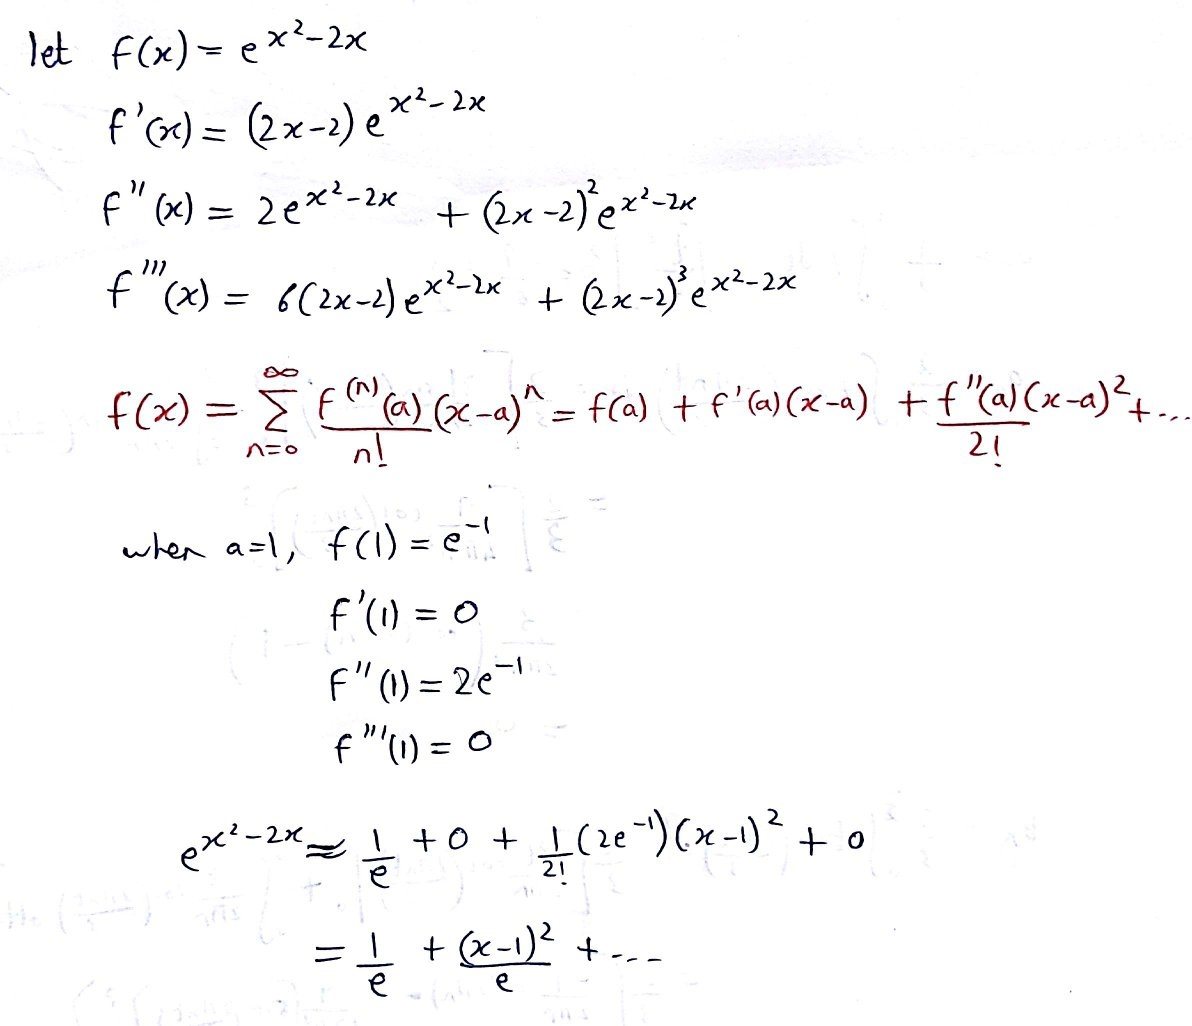 let f(x) = e^{x²-2x}
f'(x) = (2x-2) e^{x²-2x}
f''(x) = 2e^{x²-2x} + (2x-2)² e^{x²-2x}
f'''(x) = 6(2x-2) e^{x²-2x} + (2x-2)³ e^{x²-2x}
f(x) = \sum_{n=0}^{∞} \frac{f^{(n)}(a)}{n!} (x-a)^n = f(a) + f'(a)(x-a) + \frac{f''(a)(x-a)²}{2!} + ...
when a=1, f(1) = e^{-1}
f'(1) = 0
f''(1) = 2e^{-1}
f'''(1) = 0
e^{x²-2x} ≈ \frac{1}{e} + 0 + \frac{1}{2!} (2e^{-1})(x-1)² + 0
= \frac{1}{e} + \frac{(x-1)²}{e} + ...